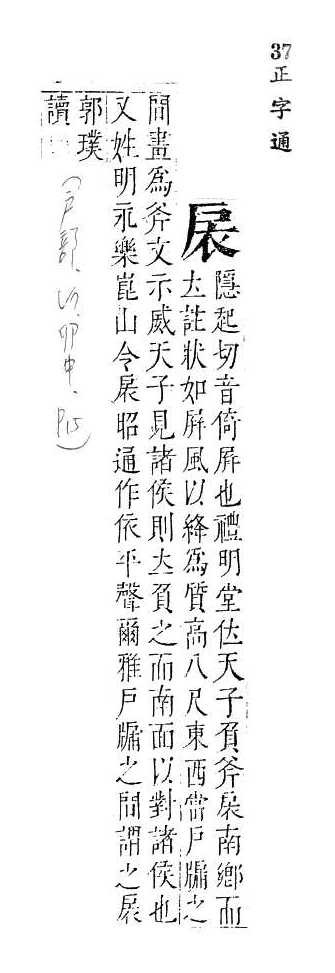 37正字通
扆
隱起切音倚屏也禮明堂位天子負斧扆南鄉而
立註狀如屏風以絳爲質高八尺東西當戶牖之
間畫爲斧文示威天子見諸侯則立負之而南面以對諸侯也
又姓明永樂崑山令扆昭通作依平聲爾雅戶牖之間謂之扆
郭璞
讀
(戶部、卯中、P15)